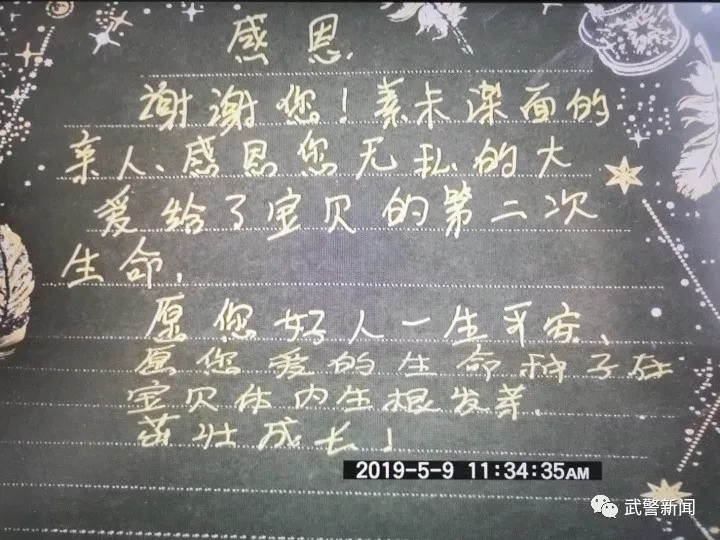 感恩
谢谢您！素未谋面的
亲人、感恩您无私的大
爱给了宝贝的第二次
生命，
愿您好人一生平安、
愿您爱的生命种子在
宝贝体内生根发芽，
茁壮成长！
2019-5-9 11:34:35AM
武警新闻